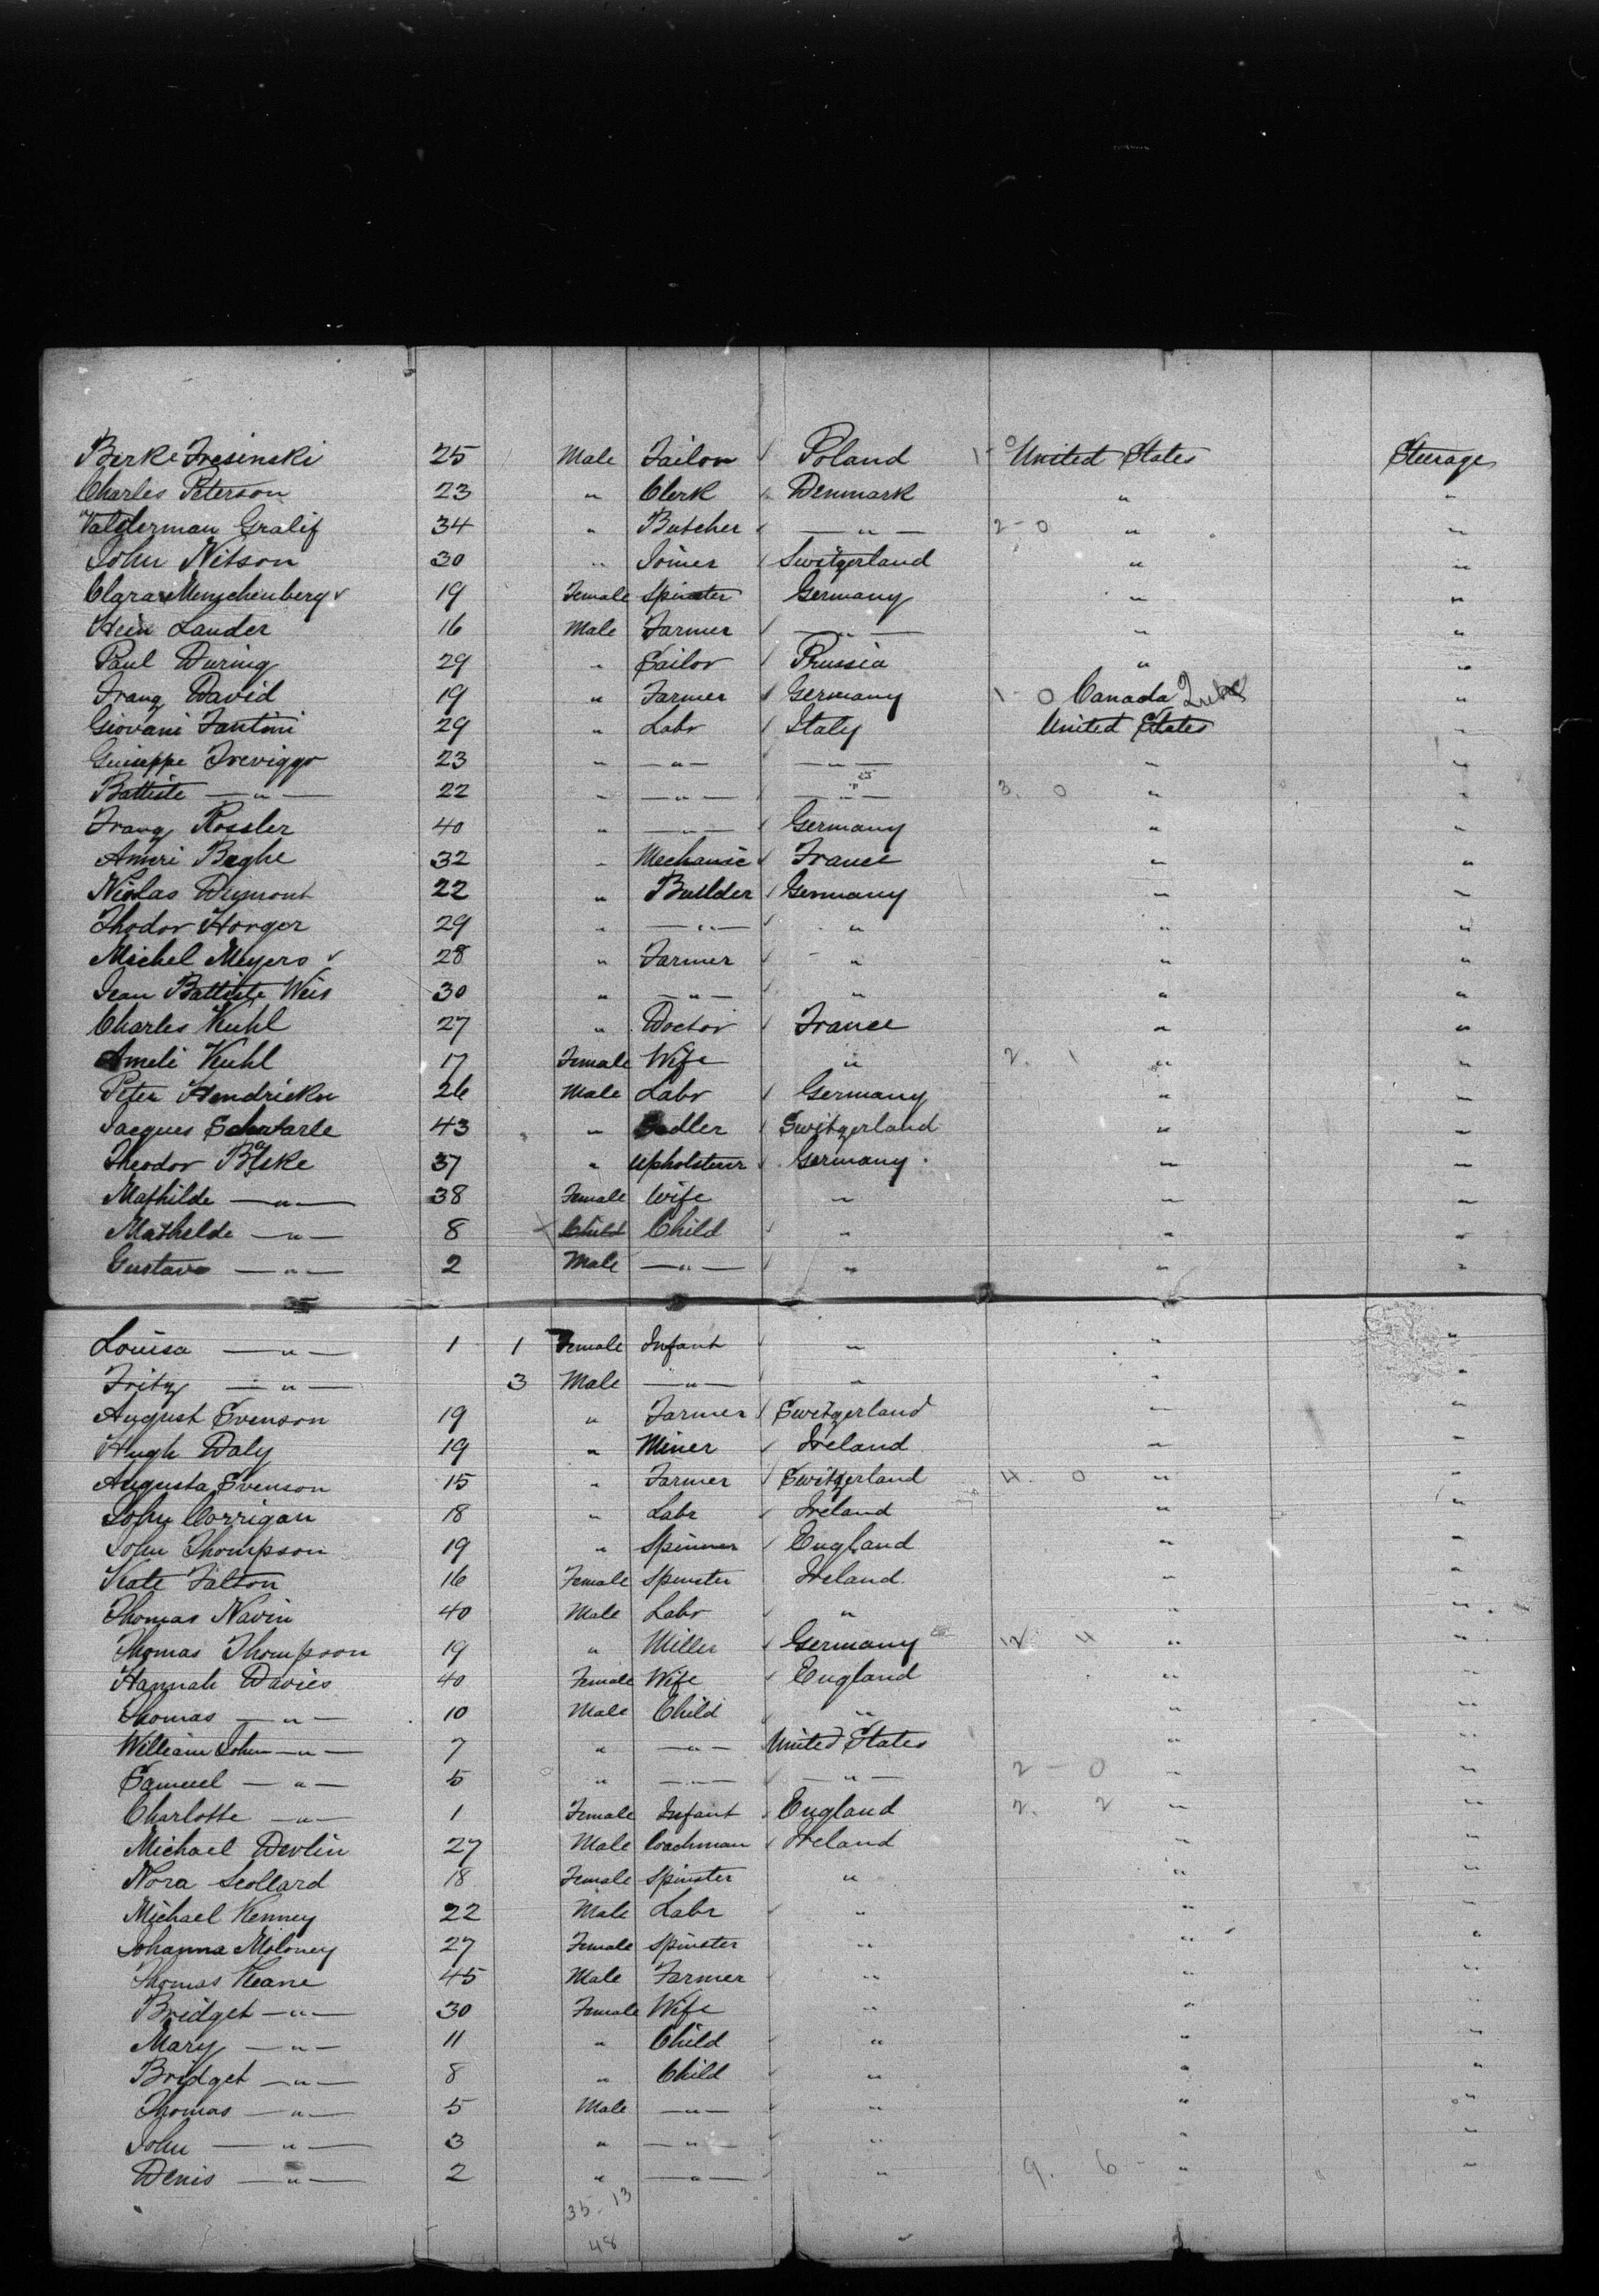 Berke Fresinski 25 Male Tailor Poland 1-0 United States Steerage
Charles Peterson 23 " Clerk Denmark " "
Valderman Gralif 34 " Butcher — " — 2-0 " "
John Nilson 30 " Joiner Switzerland " "
Clara Menschenberg 19 Female Spinster Germany " "
Hein Lander 16 Male Farmer — " — " "
Paul During 29 " Sailor Prussia " "
Franz David 19 " Farmer Germany 1-0 Canada "
Giovani Fantini 29 " Labr Italy United States "
Guiseppe Treviggo 23 " — " — — " — " "
Battiste — " — 22 " — " — — " — 3. 0 " "
Franz Rossler 40 " — " — Germany " "
Ameri Beghe 32 " Mechanic France " "
Nicolas Dumont 22 " Builder Germany " "
Thodor Horger 29 " — " — " " "
Michel Meyers 28 " Farmer " " "
Jean Battiste Weis 30 " — " — " " "
Charles Kuhl 27 " Doctor France " "
Ameli Kuhl 17 Female Wife " 2. 1 " "
Peter Hendrickn 26 Male Labr Germany " "
Jacques 43 " Sadler Switzerland " "
Theodor Baske 37 " Upholsterer Germany " "
Mathilde — " — 38 Female Wife " " "
Mathelde — " — 8 Child Child " " "
Gustave — " — 2 Male — " — " " "
Louisa — " — 1 1 Female Infant " " "
Fritz — " — 3 Male — " — " " "
August Svenson 19 " Farmer Switzerland " "
Hugh Daly 19 " Miner Ireland " "
Augusta Svenson 15 " Farmer Switzerland 4. 0 " "
John Corrigan 18 " Labr Ireland " "
John Thompson 19 " Spinner England " "
Kate Falton 16 Female Spinster Ireland " "
Thomas Navin 40 Male Labr " " "
Thomas Thompson 19 " Miller Germany 12 4 " "
Hannah Davies 40 Female Wife England " "
Thomas — " — 10 Male Child " " "
William John — " — 7 " — " — United States " "
Samuel — " — 5 " — " — — " — 2-0 " "
Charlotte — " — 1 Female Infant England 2. 2 " "
Michael Devlin 27 Male Coachman Ireland " "
Nora Scollard 18 Female Spinster " " "
Michael Kenney 22 Male Labr " " "
Johanna Moloney 27 Female Spinster " " "
Thomas Keane 45 Male Farmer " " "
Bridget — " — 30 Female Wife " " "
Mary — " — 11 " Child " " "
Bridget — " — 8 " Child " " "
Thomas — " — 5 Male — " — " " "
John — " — 3 " — " — " " "
Denis — " — 2 " — " — " 9. 6 " "
35-13
48